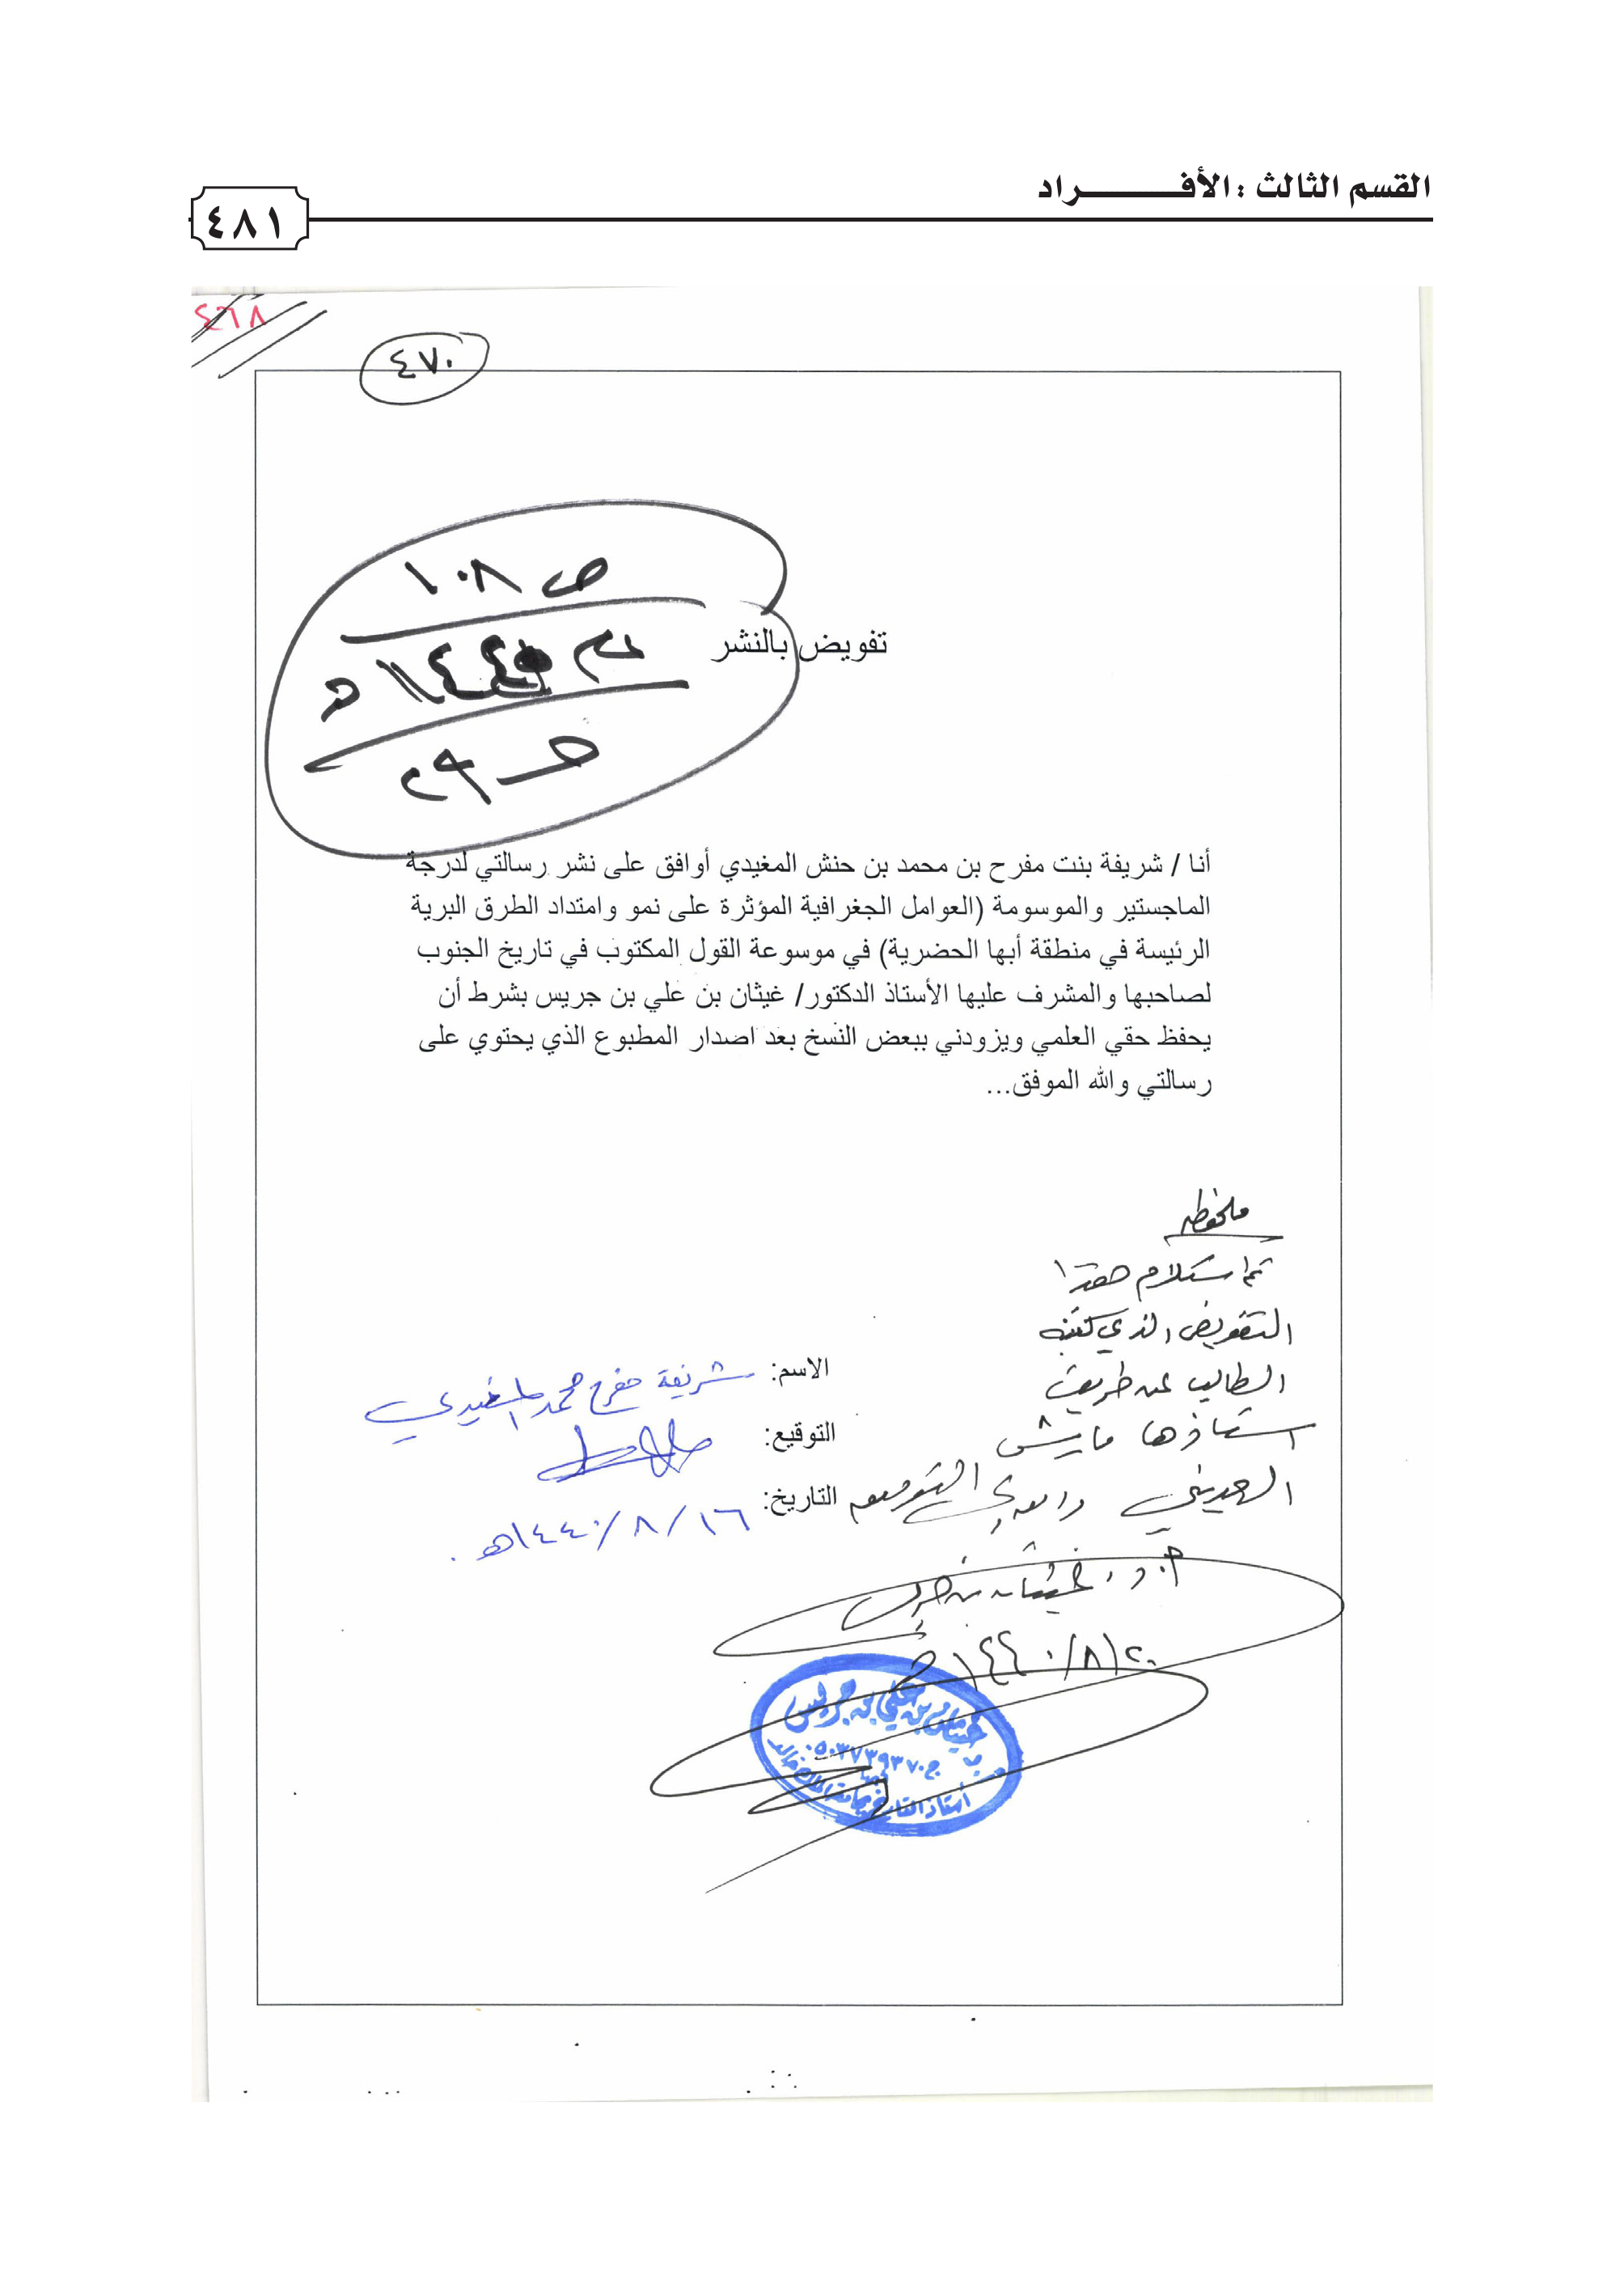 القسم الثالث : الأفـــــــراد
٤٨١
٤٦٨
٤٧٠
ص ١٠٨
تفويض بالنشر
أنا / شريفة بنت مفرح بن محمد بن حنش المغيدي أوافق على نشر رسالتي لدرجة
الماجستير والموسومة (العوامل الجغرافية المؤثرة على نمو وامتداد الطرق البرية
الرئيسة في منطقة أبها الحضرية) في موسوعة القول المكتوب في تاريخ الجنوب
لصاحبها والمشرف عليها الأستاذ الدكتور/ غيثان بن علي بن جريس بشرط أن
يحفظ حقي العلمي ويزودني ببعض النسخ بعد اصدار المطبوع الذي يحتوي على
رسالتي والله الموفق...
ملحوظه
تم استلام هذا
التفويض الذي كتبته
الطالبه عن طريق
استاذها
الاسم: شريفة مفرح محمد المغيدي
التوقيع:
التاريخ: ١٦/ ٨ / ١٤٤٠هـ
أ.د. غيثان بن جريس
٢٠/٨/١٤٤٠هـ
غيثان بن علي بن جريس
ج ٠٥٠٣٧٣٩٣٧٠
أستاذ التاريخ بجامعة الملك خالد